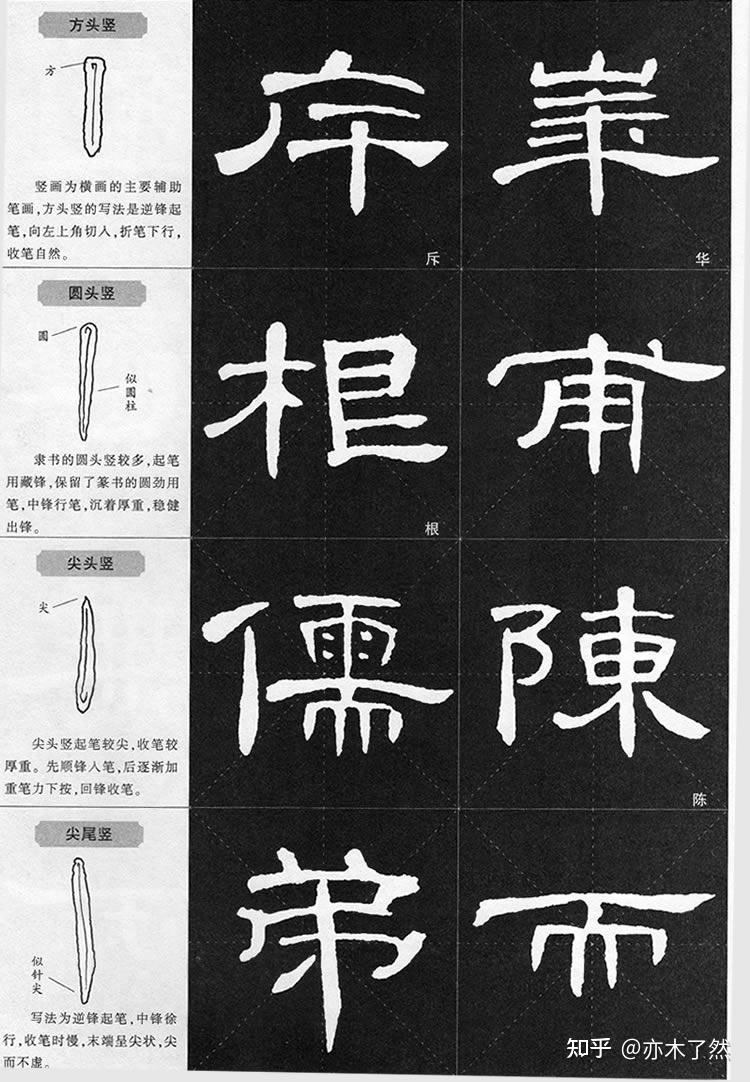 方头竖
方
竖画为横画的主要辅助
笔画,方头竖的写法是逆锋起
笔,向左上角切入,折笔下行,
收笔自然。
斥
华
圆头竖
圆
似圆柱
隶书的圆头竖较多,起笔
用藏锋,保留了篆书的圆劲用
笔,中锋行笔,沉着厚重,稳健
出锋。
根
根
甫
尖头竖
尖
尖头竖起笔较尖,收笔较
厚重。先顺锋入笔,后逐渐加
重笔力下按,回锋收笔。
儒
陳
陈
尖尾竖
似针尖
写法为逆锋起笔,中锋徐
行,收笔时慢,末端呈尖状,尖
而不虚。
弟
而
知乎 @亦木了然